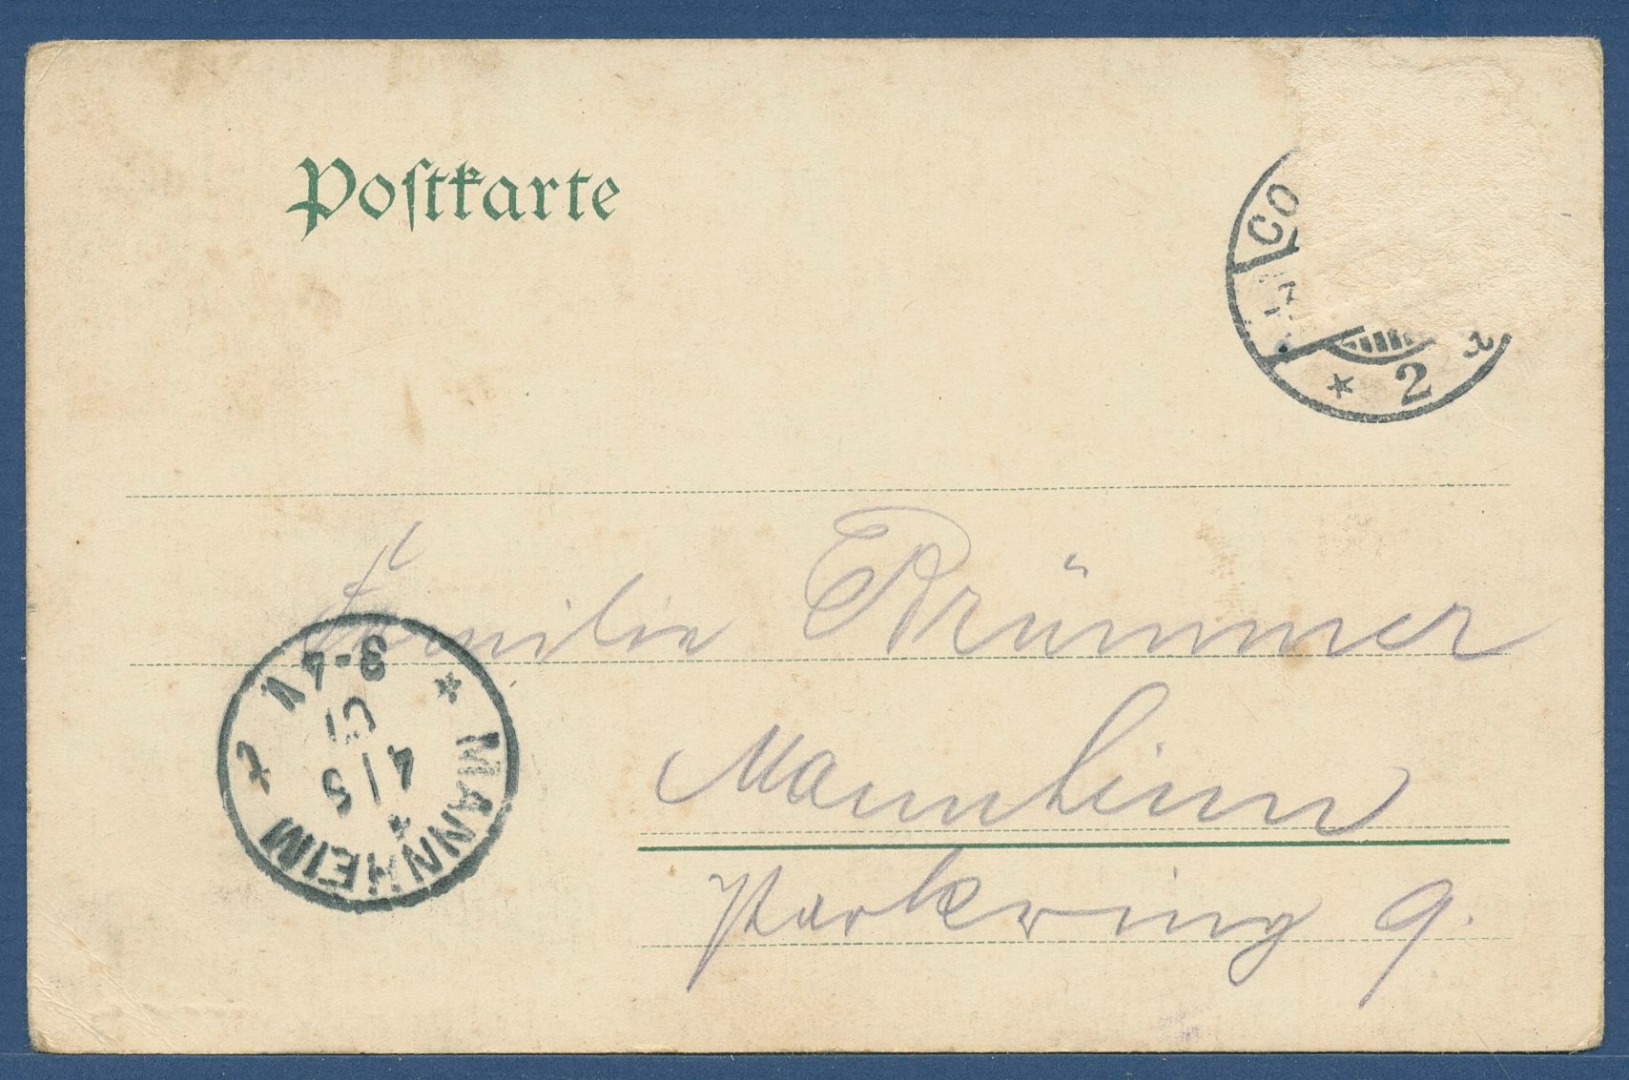 Postkarte
CO
* 2 a
Familie Brümmer
Mannheim
Parkring 9.
* MANNHEIM * 2
4/5
01
3-4 N